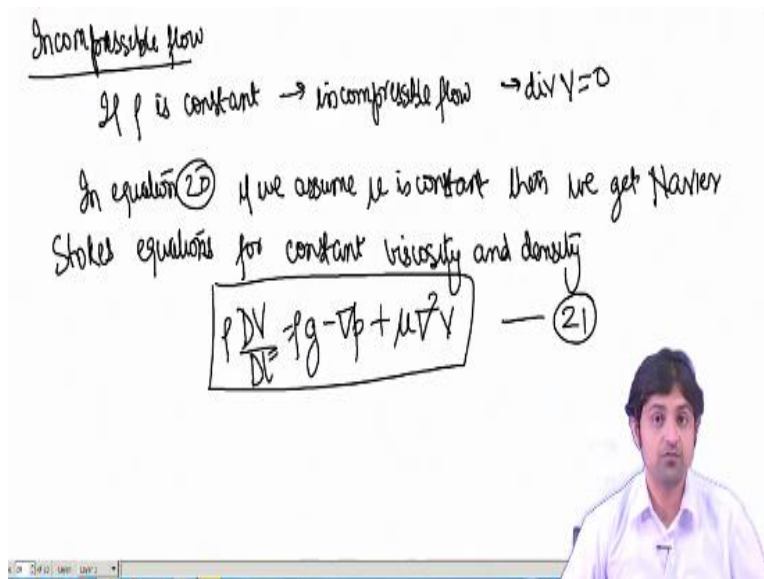 Incompressible flow
If ρ is constant → incompressible flow → div V=0
In equation 20 if we assume μ is constant then we get Navier
Stokes equations for constant viscosity and density
ρ DV/Dt = ρg - ∇p + μ∇²V — 21